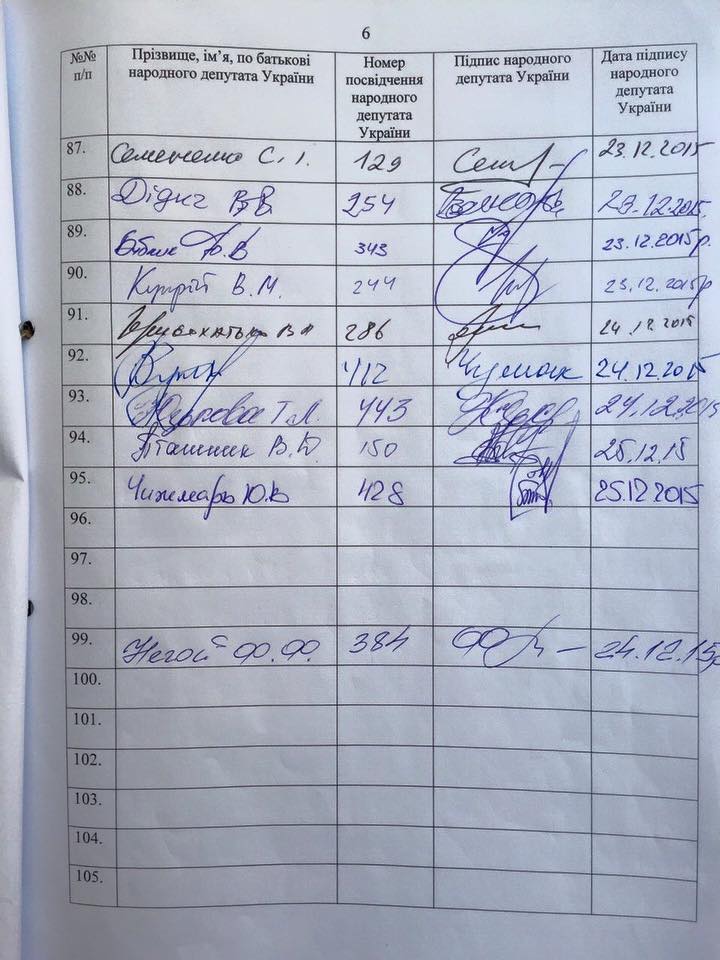 6
№№ п/п
Прізвище, ім’я, по батькові народного депутата України
Номер посвідчення народного депутата України
Підпис народного депутата України
Дата підпису народного депутата України
87. Семенченко С. І. 129 23.12.2015
88. Дідич В.В. 254 23.12.2015.
89. В 343 23.12.2015р.
90. В.М. 244 23.12.2015р
91. 286 24.12.2015
92. 412 Чумак 24.12.2015
93. Т.Л. 443 24.12.2015
94. Пташник В.Ю. 150 25.12.15
95. Чижмарь Ю.В 428 25.12 2015
96.
97.
98.
99. Негой Ф.Ф. 384 24.12.15р
100.
101.
102.
103.
104.
105.